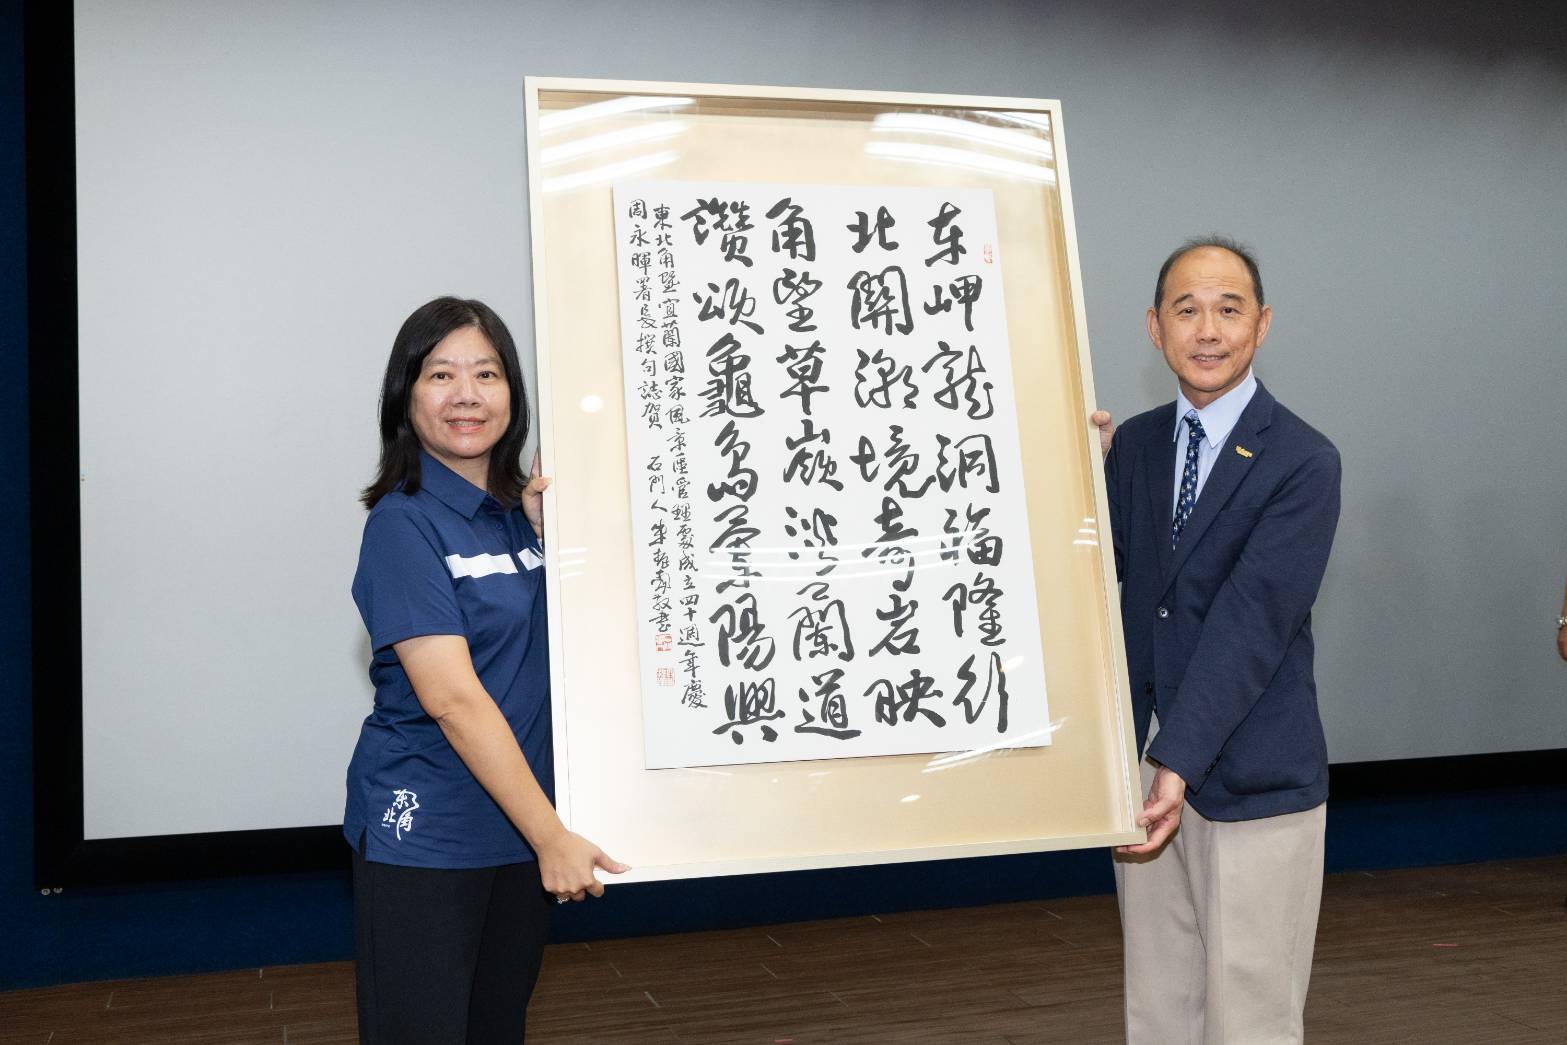 東岬龍洞福隆行
北關潮境奇岩映
角望草嶺淡蘭道
讚頌龜島蘭陽興
東北角暨宜蘭國家風景區管理處成立四十週年慶
周永暉署長撰句誌賀 石門人朱振南敬書
東北角